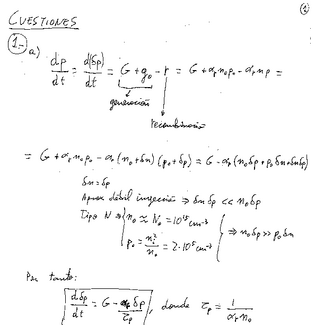 ①
CUESTIONES
1.- a)
dp/dt = d(δp)/dt = G + g₀ - r = G + αᵣn₀p₀ - αᵣnp =
generación
recombinación
= G + αᵣn₀p₀ - αᵣ(n₀+δn)(p₀+δp) = G - αᵣ(n₀δp + p₀δn + δnδp)
δn = δp
Aprox débil inyección ⇒ δnδp << n₀δp
Tipo N ⇒ { n₀ ≈ N₀ = 10¹⁵ cm⁻³
p₀ = nᵢ²/n₀ = 2·10⁵ cm⁻³ } ⇒ n₀δp >> p₀δn
Por tanto:
dδp/dt = G - δp/τₚ, donde τₚ = 1/αᵣn₀